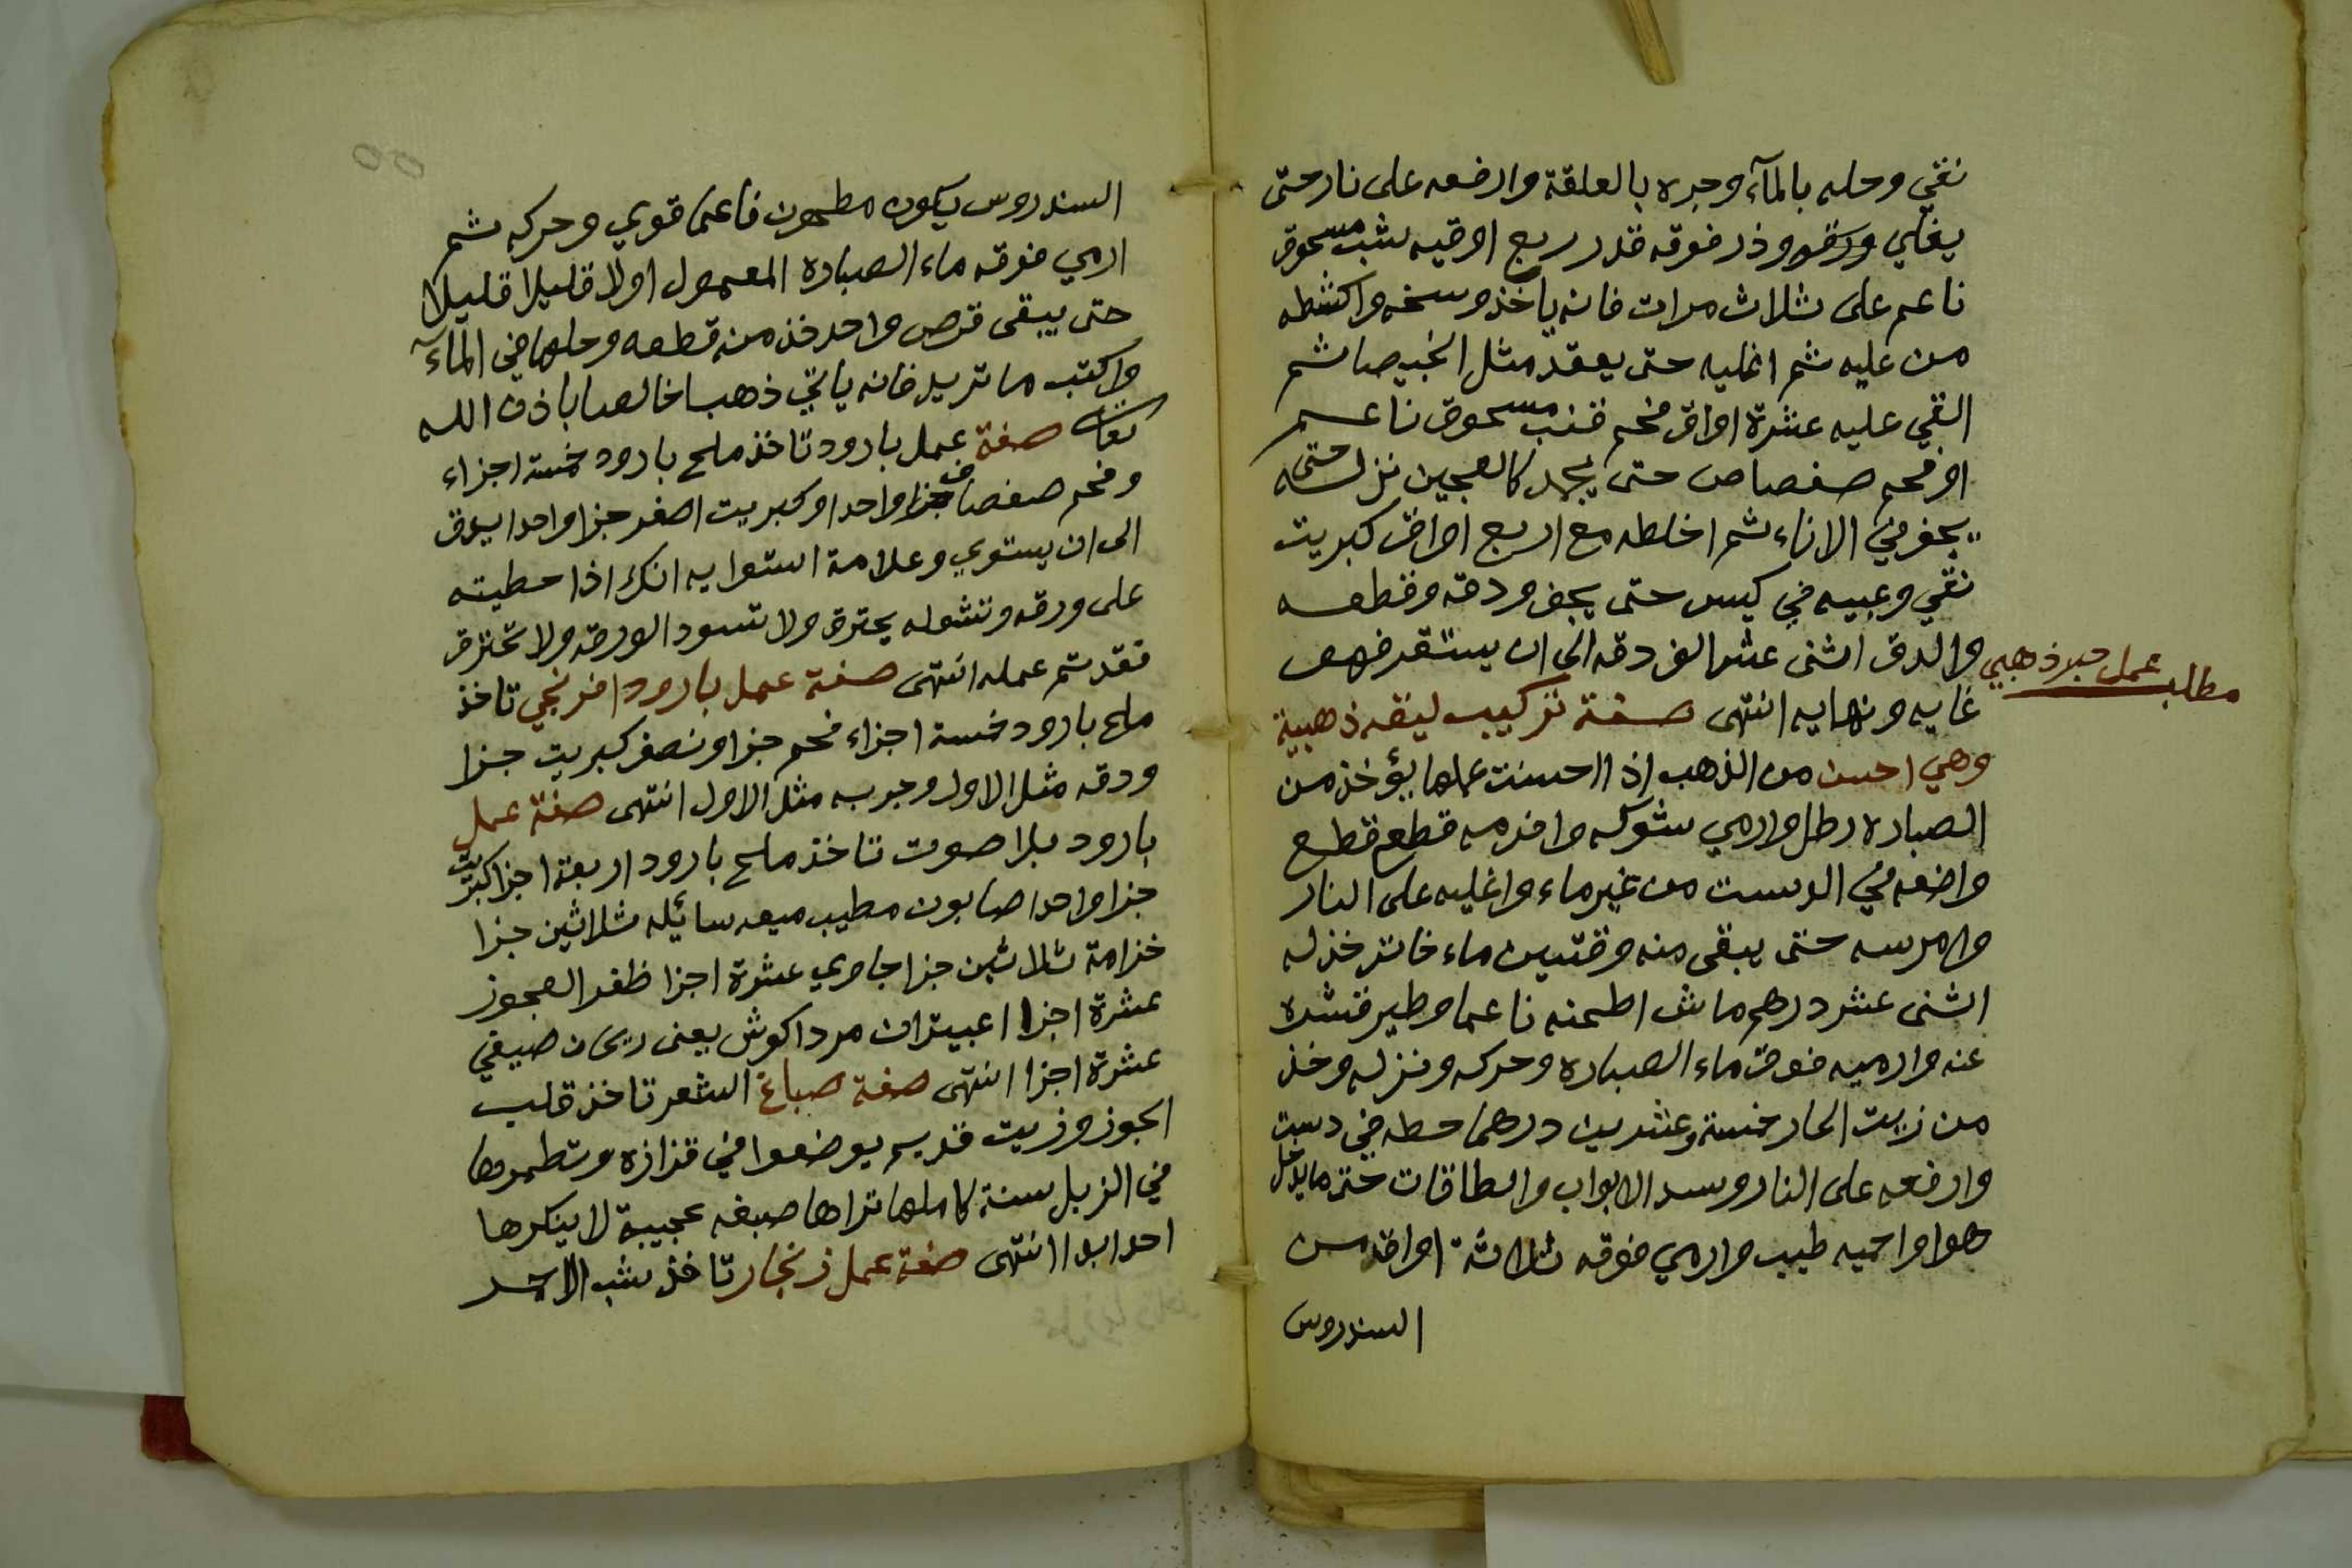 نقي وحله بالمآء وجره بالعلقة وارفعه على نار حتى
يغلي وذر فوقه قدر ربع اوقيه شب مسحوق
ناعم على ثلاث مرات فانه ياخذ وسخه واكشطه
من عليه ثم اغليه حتى يعقد مثل الخبيصا ثم
القي عليه عشرة اواق فحم قنب مسحوق ناعم
او فحم صفصاص حتى يجمد كالعجين نزله حتى
يجف في الاناء ثم اخلطه مع اربع اواق كبريت
نقي وعبيه في كيس حتى يجف ودقه وقطعه
والدق اثنى عشر الف دقه الى ان يستقر فهو
مطلب عمل حبر ذهبي
غايه ونهايه انتهى صفة تركيب ليقه ذهبية
وهي احسن من الذهب اذا احسنت عملها يؤخذ من
الصباره رطل وارمي شوكه وافرمه قطع قطع
واضعه في الدست من غير ماء واغليه على النار
وامرسه حتى يبقى منه وقتين ماء خاتر خذ له
اثنى عشر درهم ماش اطحنه ناعما وطير قشره
عنه وارميه فوق ماء الصباره وحركه ونزله وخذ
من زيت الحار خمسة وعشرين درهما حطه في دست
وارفعه على النار وسد الابواب والطاقات حتى ما يدخل
هوا واحميه طيب وارمي فوقه ثلاثة اواق من
السندروس
السندروس يكون مطحون ناعما قوي وحركه ثم
ارمي فوقه ماء الصباره المعمول اولا قليلا قليلا
حتى يبقى قرص واحد خذ من قطعه وحلها في المآء
واكتب ما تريد فانه ياتي ذهبا خالصا باذن الله
تعالى صفة عمل بارود تاخذ ملح بارود خمسة اجزاء
وفحم صفصاف جزا واحدا وكبريت اصفر جزا واحدا يدق
الى ان يستوي وعلامة استوايه انك اذا حطيته
على ورقه وتشوله يحترق ولا تسود الورقه ولا تحترق
فقد تم عمله انتهى صفة عمل بارود افرنجي تاخذ
ملح بارود خمسة اجزاء فحم جزا ونصف كبريت جزا
ودقه مثل الاول وجربه مثل الاول انتهى صفة عمل
بارود بلا صوت تاخذ ملح بارود اربعة اجزا كبريت
جزا واحدا صابون مطيب ميعه سائيله ثلاثين جزا
خزامة ثلاثين جزا جاوي عشرة اجزا ظفر العجوز
عشرة اجزا اعبيتران مرداكوش يعنى ريحان صيفي
عشرة اجزا انتهى صفة صباغ الشعر تاخذ قلب
الجوز وزيت قديم يوضعوا في قزازه وتطمرها
في الزبل سنة كاملها تراها صبغه عجيبة لا ينكرها
احد ابدا انتهى صفة عمل زنجار تاخذ شب الاحمر